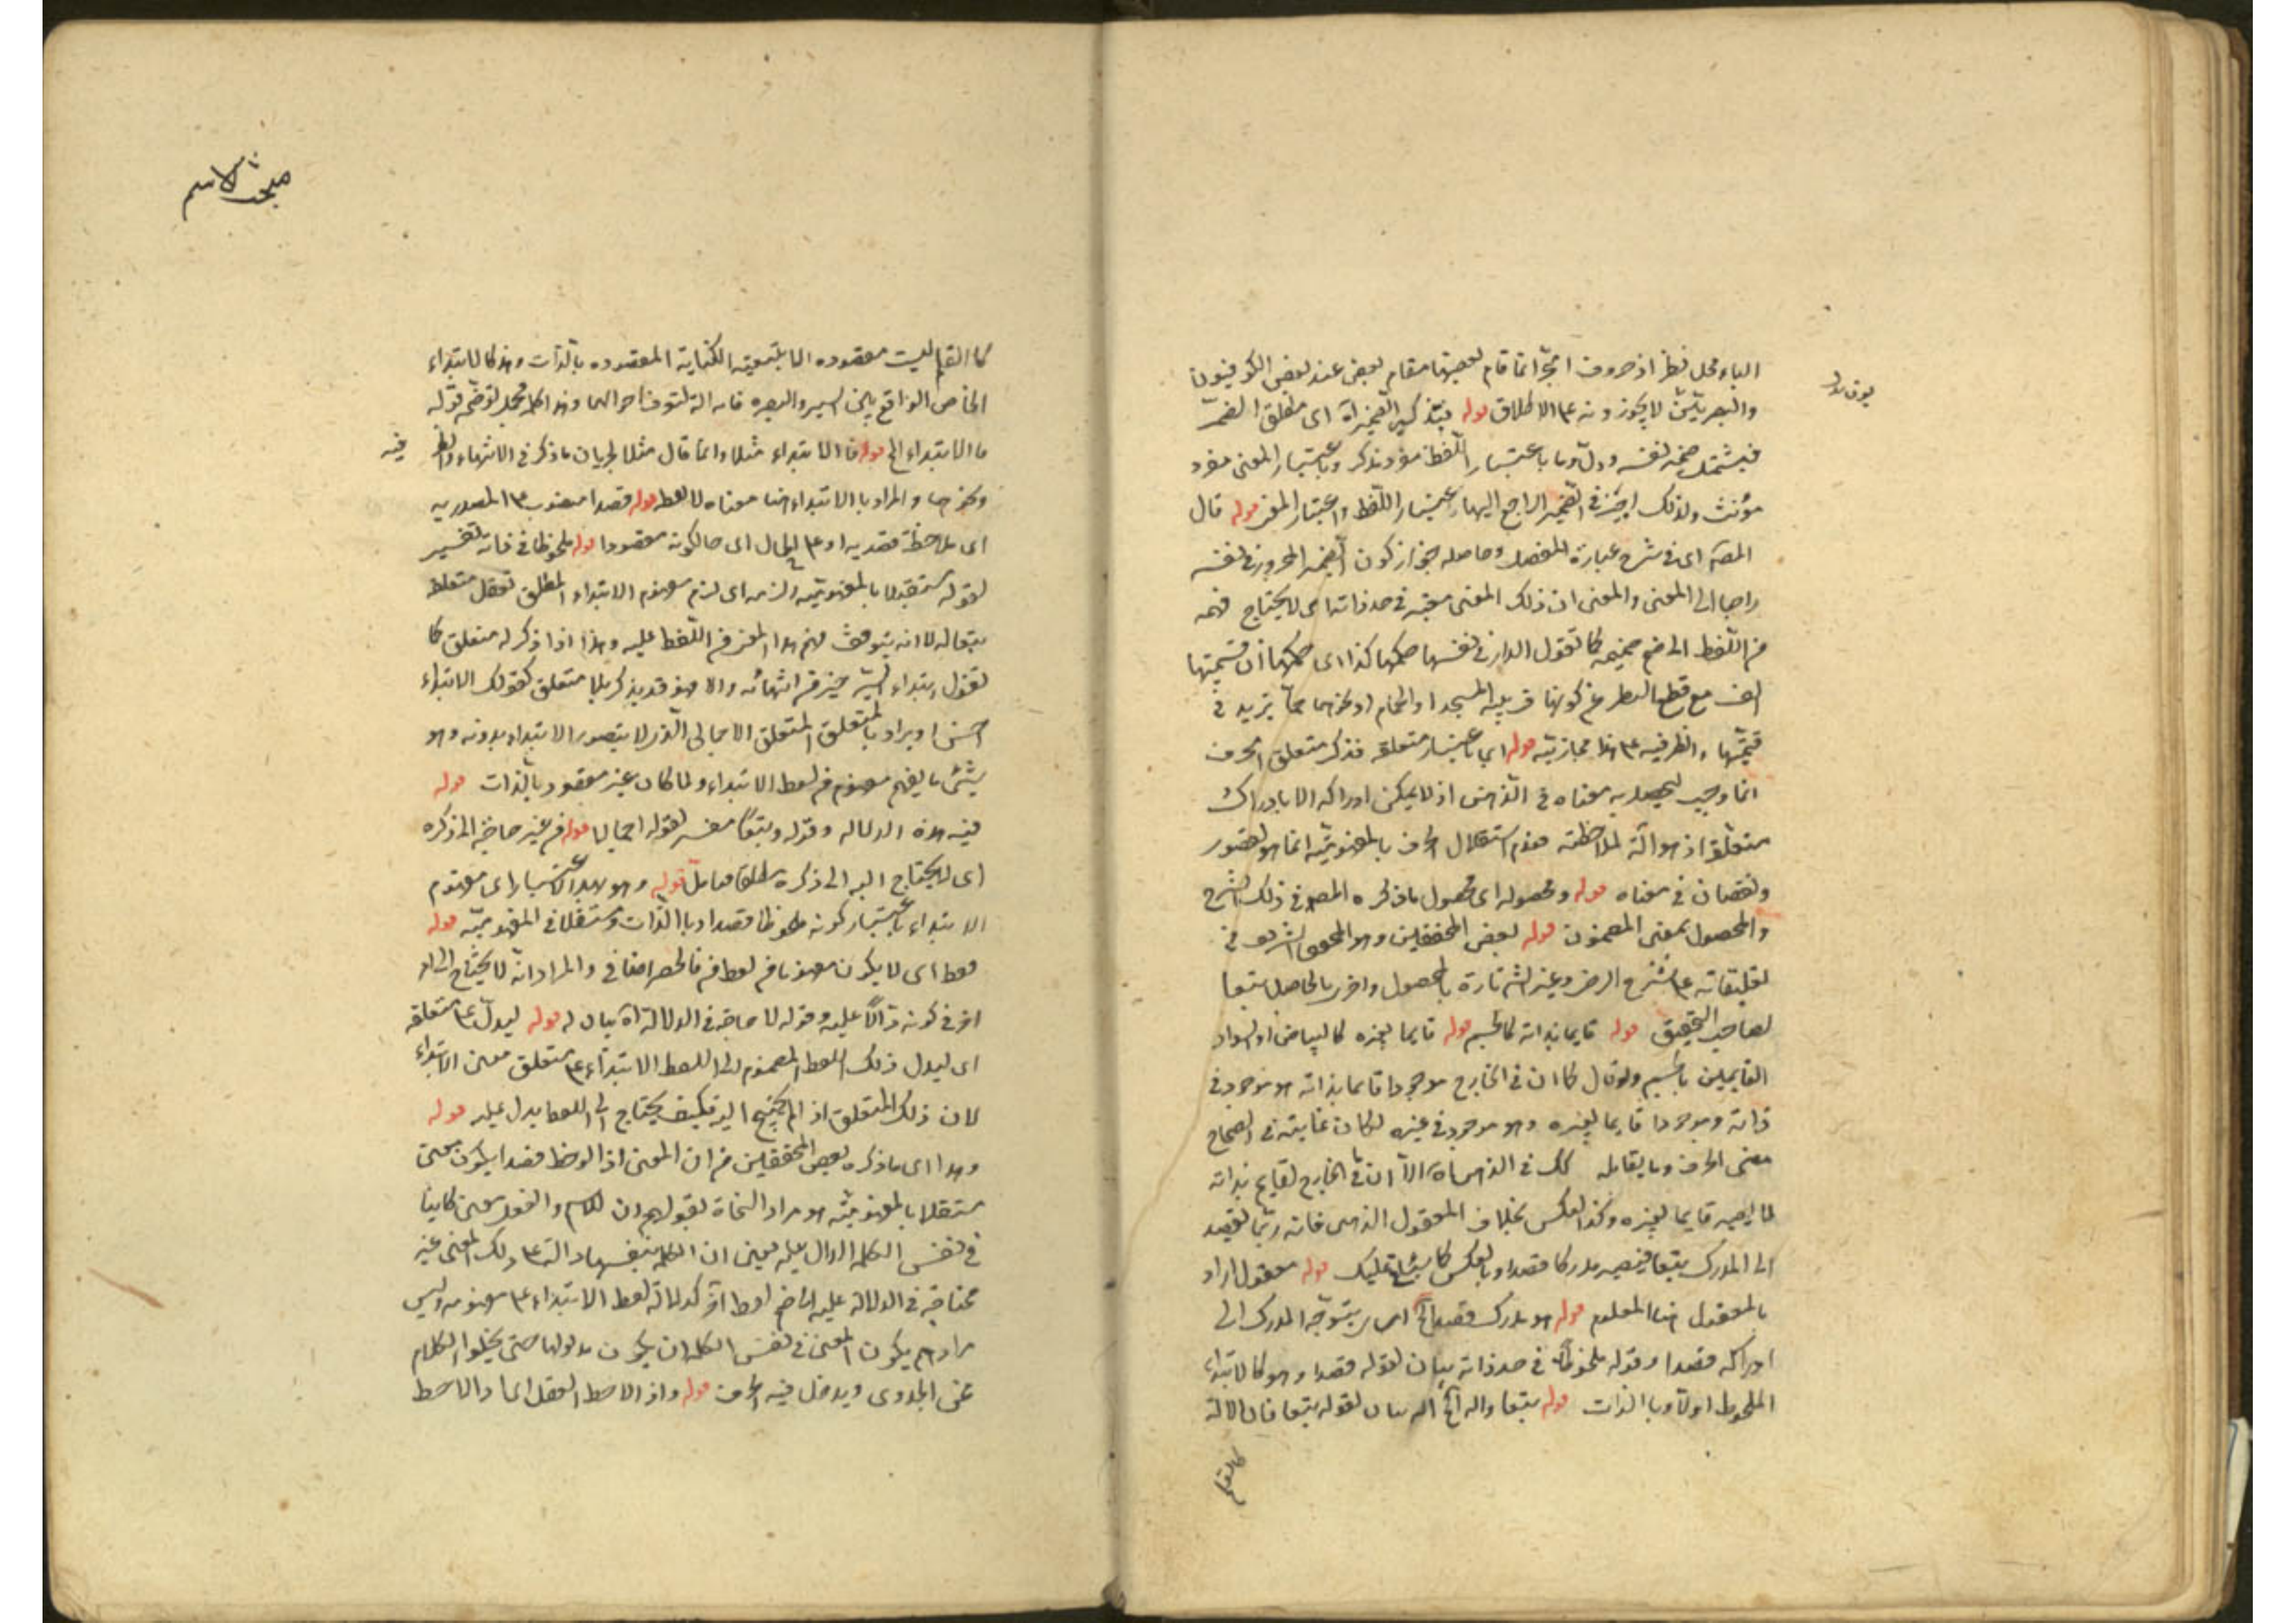 الباء محل نظر اذ حروف الجر انما قام بعضها مقام بعض عند بعض الكوفيون
والبصريين لا يجوزونه على الاطلاق قوله بتذكير الضمير آه اى مطلق الضمير
فيشتمل ضمير نفسه ودل وما باعتبار اللفظ مفرد مذكر وباعتبار المعنى مفرد
مؤنث ولذلك اجيز في الضمير الراجع اليها اعتبار اللفظ واعتبار المعنى قوله قال
المصـ اى في شرح عبارة المفصل وحاصله جواز كون الضمير المجرور في نفسه
راجعا الى المعنى والمعنى ان ذلك المعنى معتبر في حد ذاته اى لا يحتاج فهمه
من اللفظ الى ضم ضميمه كما تقول الدار في نفسها حكمها كذا اى حكمها ان قيمتها
الف مع قطع النظر عن كونها قريبة المسجد او الحمام او نحوهما مما يزيد في
قيمتها والظرفيه على هذا مجازية قوله اى باعتبار متعلقه فذكر متعلق الحرف
انما وجب ليحصل به معناه في الذهن اذ لا يمكن ادراكه الا بادراك
متعلقه اذ هو آلة لملاحظته فعدم استقلال الحرف بالمفهومية انما هو لقصور
ونقصان في معناه قوله ومحصوله اى محصول ما ذكره المصـ في ذلك الشرح
والمحصول بمعنى المضمون قوله بعض المحققين وهو المحقق الشريف في
تعليقاته على شرح الرضى وعبر الشـ تارة بالمحصول واخرى بالحاصل تبعا
لصاحب التحقيق قوله قايما بذاته كالجسم قوله قايما بغيره كالبياض او السواد
القايمين بالجسم ولو قال كما ان في الخارج موجودا قايما بذاته هو موجود في
ذاته وموجودا قايما بغيره وهو موجود في غيره لكان غاية في ايضاح
معنى الحرف وما يقابله كك في الذهن آه الا ان ما في الخارج القايم بذاته
لا يصير قايما بغيره وكذا العكس بخلاف المعقول الذهنى فانه ربما يقصد
الى المدرك تبعا فيصير مدركا قصدا وبالعكس كما سيتلى عليك قوله معقول اراد
بالمعقول هنا المعلوم قوله هو مدرك قصدا آخ اى يتوجه المدرك الى
ادراكه قصدا وقوله ملحوظا في حد ذاته بيان لقوله قصدا وهو كالابتداء
الملحوظ اولا وبالذات قوله تبعا وآلة آخ آلة بيان لقوله تبعا فان الآلة
كالقلم
مبحث الاسم
كما القلم ليست مقصوده الا بتبعية الكتابة المقصوده بالذات وهو كالابتداء
الخاص الواقع بين السير والبصره فانه آلة لتعرف احوالهما وهذا كلام مجمل توضحه قوله
ما الابتداء الخ قوله فالابتداء مثلا وانما قال مثلا لجريان ما ذكر في الانتهاء والظرفيه
ونحوهما والمراد بالابتداء هنا معناه لا لفظه قوله قصدا منصوب على المصدريه
اى ملاحظة قصديه او على الحال اى حالكونه مقصودا قوله ملحوظا في ذاته تفسير
لقوله مستقلا بالمفهومية ولزمه اى لزم مفهوم الابتداء المطلق تعقل متعلقه
تبعا له لا انه يتوقف فهم هذا المعنى من اللفظ عليه وهذا اذا ذكر له متعلق كما
تقول ابتداء السير خير من انتهائه والا فهو قد يذكر بلا متعلق كقولك الابتداء
حسن او يراد بالمتعلق المتعلق الاجمالى الذى لا يتصور الابتداء بدونه وهو
شئ ما يفهم مفهوم من لفظ الابتداء ولما كان غير مقصود بالذات قوله
فيه هذه الدلاله وقوله وتبعا مفسر لقوله اجمالا قوله من غير حاجة الى ذكره
اى لا يحتاج اليه الى ذكره مطلقا فتامل قوله وهو بهذا الاعتبار اى مفهوم
الابتداء باعتبار كونه ملحوظا قصدا وبالذات ومستقلا في المفهومية قوله
فقط اى لا يكون مفهوما من لفظ من فالحصر اضافى والمراد انه لا يحتاج الى امر
اخر في كونه دالا عليه وقوله لا حاجة في الدلالة آه بيان له قوله ليدل على متعلقه
اى ليدل ذلك اللفظ المضموم الى اللفظ الابتداء على متعلق معنى الابتداء
لان ذلك المتعلق اذا لم يحتج اليه فكيف يحتاج الى اللفظ يدل عليه قوله
وهذا اى ما ذكره بعض المحققين من ان المعنى اذا لوحظ قصدا يكون معنى
مستقلا بالمفهومية هو مراد النحاة بقولهم ان للاسم والفعل معنى كاينا
في نفس الكلمه الدال عليه يعنى ان الكلمه بنفسها دالة على ذلك المعنى غير
محتاجة في الدلالة عليه الى ضم لفظ آخر كدلالة لفظ الابتداء على مفهومه وليس
مرادهم يكون المعنى في نفس الكلمه ان يكون مدلولها حتى يخلوا الكلام
عن الجدوى ويدخل فيه الحرف قوله واذا لاحظ العقل انما لاحظ